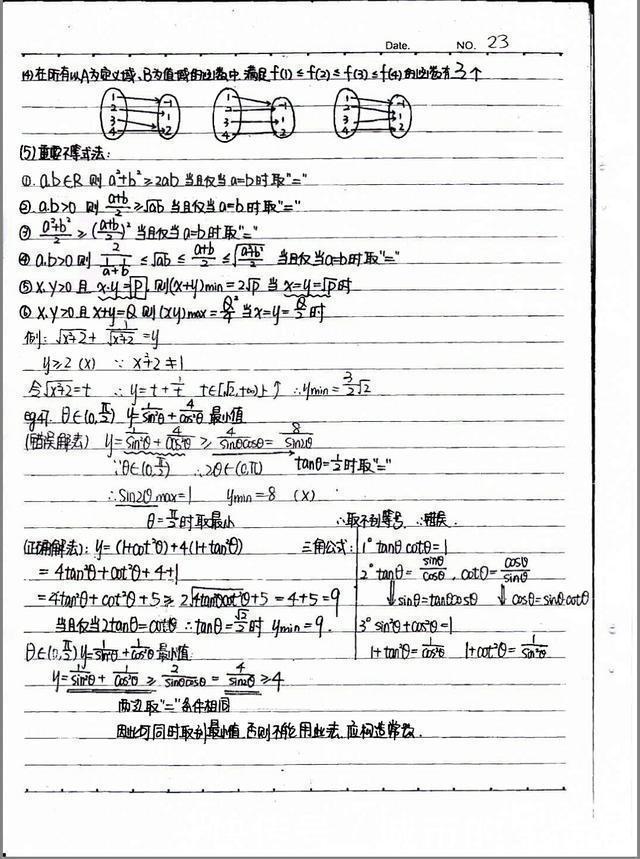 Date. NO. 23
(4)在所有以A为定义域、B为值域的函数中,满足f(1)≤f(2)≤f(3)≤f(4)的函数有3个
1 2 3 4 -1 1 2 1 2 3 4 -1 1 2 1 2 3 4 -1 1 2
(5)重要不等式法:
①. a.b∈R 则 a²+b²≥2ab 当且仅当a=b时取"="
②. a.b>0 则 (a+b)/2 ≥√ab 当且仅当a=b时取"="
③ (a²+b²)/2 ≥ ((a+b)/2)² 当且仅当a=b时取"="
④ a,b>0 则 2/(1/a+1/b) ≤√ab ≤ (a+b)/2 ≤ √((a²+b²)/2) 当且仅当a=b时取"="
⑤ x,y>0 且 x·y=P, 则(x+y)min=2√P 当 x=y=√P时
⑥ x,y>0 且 x+y=Q 则 (xy)max=Q²/4 当x=y=Q/2时
例: √(x²+2) + 1/√(x²+2) =y
y≥2 (×) ∵ x²+2≠1
令√(x²+2)=t ∴y=t+1/t t∈[√2,+∞)上↑ ∴ymin=3/2√2
eg47. θ∈(0,π/2) y=1/sin²θ+4/cos²θ 最小值
(错误解法) y=1/sin²θ+4/cos²θ ≥ 4/sinθcosθ = 8/sin2θ
∵θ∈(0,π/2) ∴2θ∈(0,π) tanθ=1/2时取"="
∴sin2θmax=1 ymin=8 (×)
θ=π/2时取最小 ∴取不到等号,∴错误.
(正确解法): y=(1+cot²θ)+4(1+tan²θ) 三角公式: 1° tanθcotθ=1
=4tan²θ+cot²θ+4+1 2° tanθ=sinθ/cosθ, cotθ=cosθ/sinθ
=4tan²θ+cot²θ+5≥2√(4tan²θcot²θ)+5=4+5=9 ⇓sinθ=tanθcosθ ⇓cosθ=sinθcotθ
当且仅当2tanθ=cotθ ∴tanθ=√2/2时 ymin=9. 3° sin²θ+cos²θ=1
θ∈(0,π/2) y=1/sin²θ+1/cos²θ最小值: 1+tan²θ=1/cos²θ 1+cot²θ=1/sin²θ
y=1/sin²θ+1/cos²θ≥2/sinθcosθ=4/sin2θ≥4
两边取"="条件相同
因此可同时取到最小值,否则不能用此法,应构造常数.